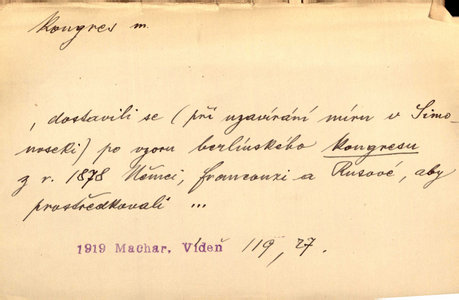 Kongres m.
, dostavili se (při uzavírání míru v Simo-
noseki) po vzoru berlínského kongresu
z r. 1878 Němci, francouzi a Rusové, aby
prostředkovali ...
1919 Machar, Vídeň 119, 27.